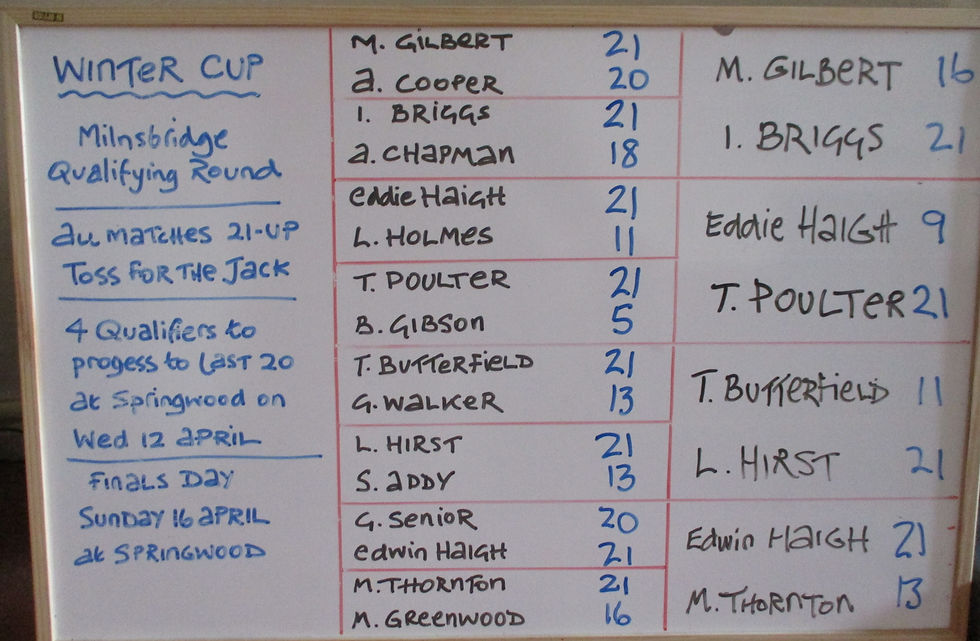 WINTER CUP
Milnsbridge
Qualifying Round
all matches 21-UP
Toss for the Jack
4 Qualifiers to
progess to Last 20
at Springwood on
Wed 12 April
Finals Day
Sunday 16 April
at Springwood
M. GILBERT 21
A. COOPER 20
I. BRIGGS 21
A. CHAPMAN 18
eddie Haigh 21
L. HOLMES 11
T. POULTER 21
B. GIBSON 5
T. BUTTERFIELD 21
G. WALKER 13
L. HIRST 21
S. ADDY 13
G. SENIOR 20
edwin Haigh 21
M. THORNTON 21
M. GREENWOOD 16
M. GILBERT 16
I. BRIGGS 21
Eddie Haigh 9
T. POULTER 21
T. BUTTERFIELD 11
L. HIRST 21
Edwin Haigh 21
M. THORNTON 13